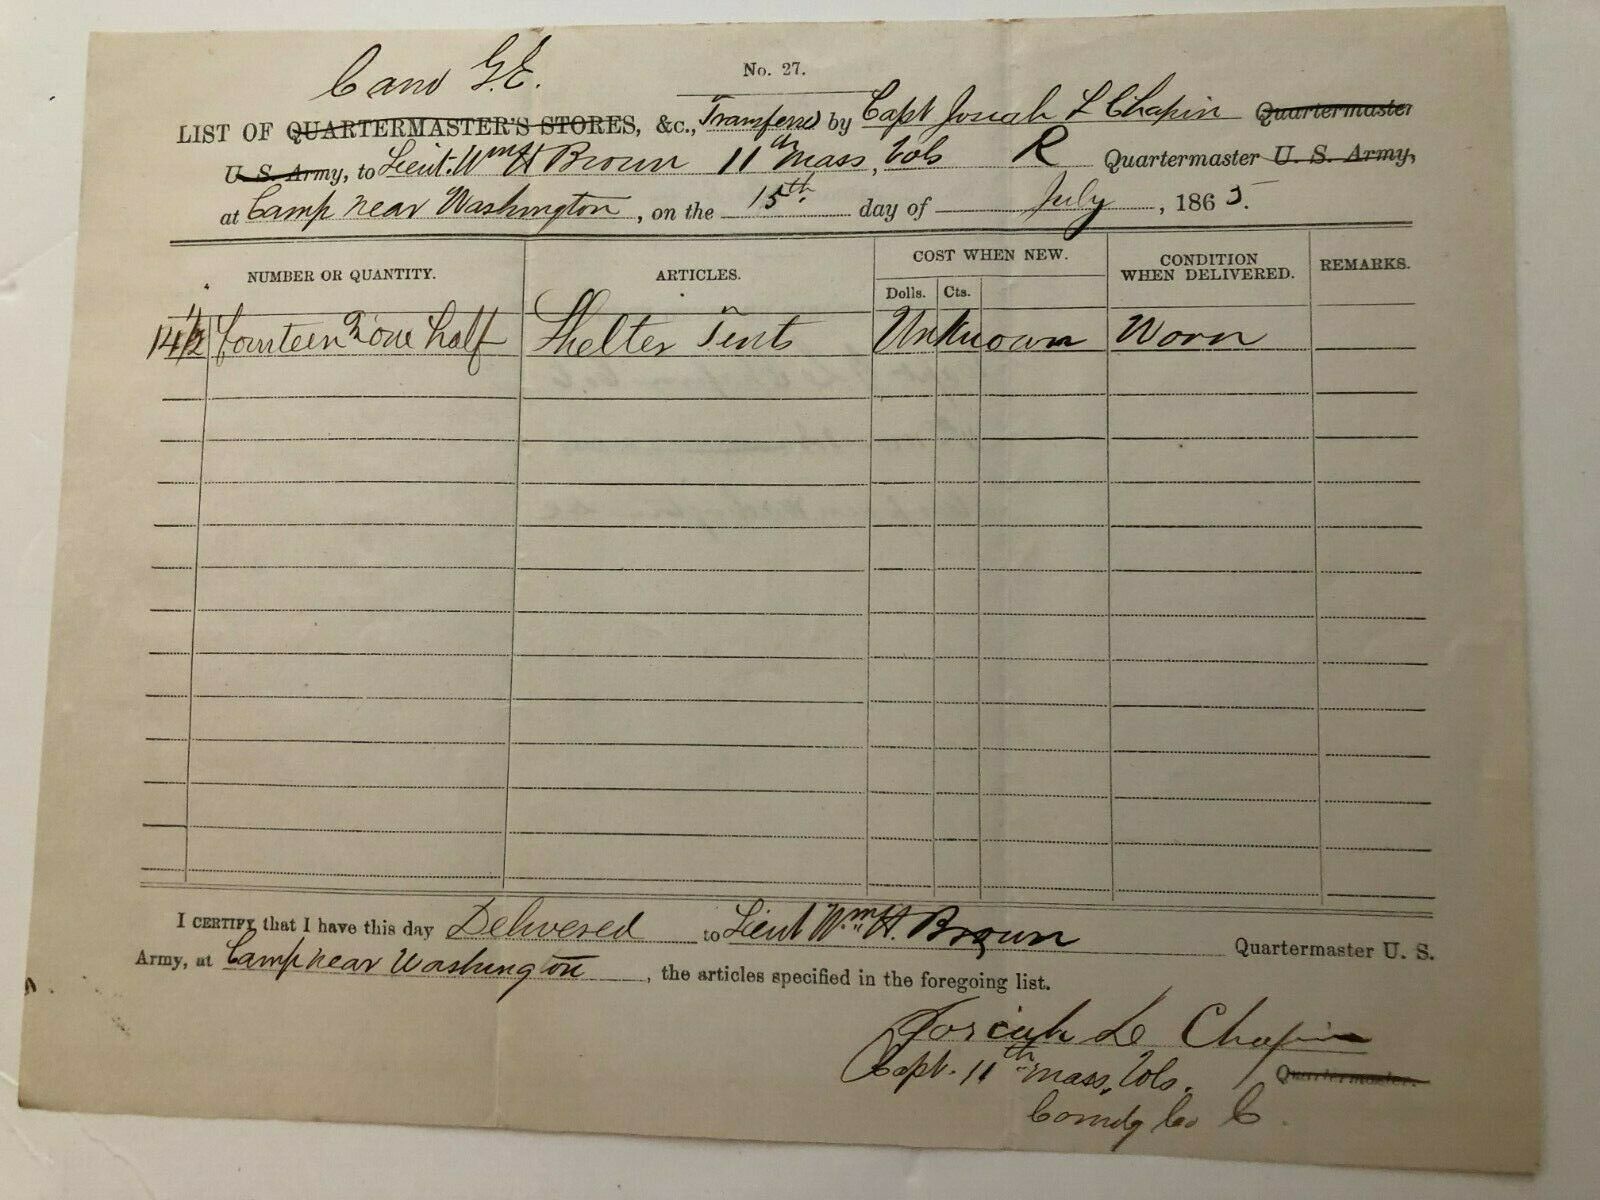 C and G.E.
No. 27.
LIST OF QUARTERMASTER'S STORES, &c., Transferred by Capt Josiah L Chapin Quartermaster
U. S. Army, to Lieut. Wm H Brown 11th Mass, Vols R Quartermaster U. S. Army,
at Camp near Washington, on the 15th. day of July, 1865.
NUMBER OR QUANTITY. ARTICLES. COST WHEN NEW. CONDITION WHEN DELIVERED. REMARKS.
Dolls. Cts.
14 1/2 Fourteen & one half Shelter Tents Unknown Worn
I CERTIFY, that I have this day Delivered to Lieut Wm. H. Brown Quartermaster U. S.
Army, at Camp near Washington, the articles specified in the foregoing list.
Josiah L Chapin
Capt. 11th Mass. Vols. Quartermaster.
Comdg Co C.